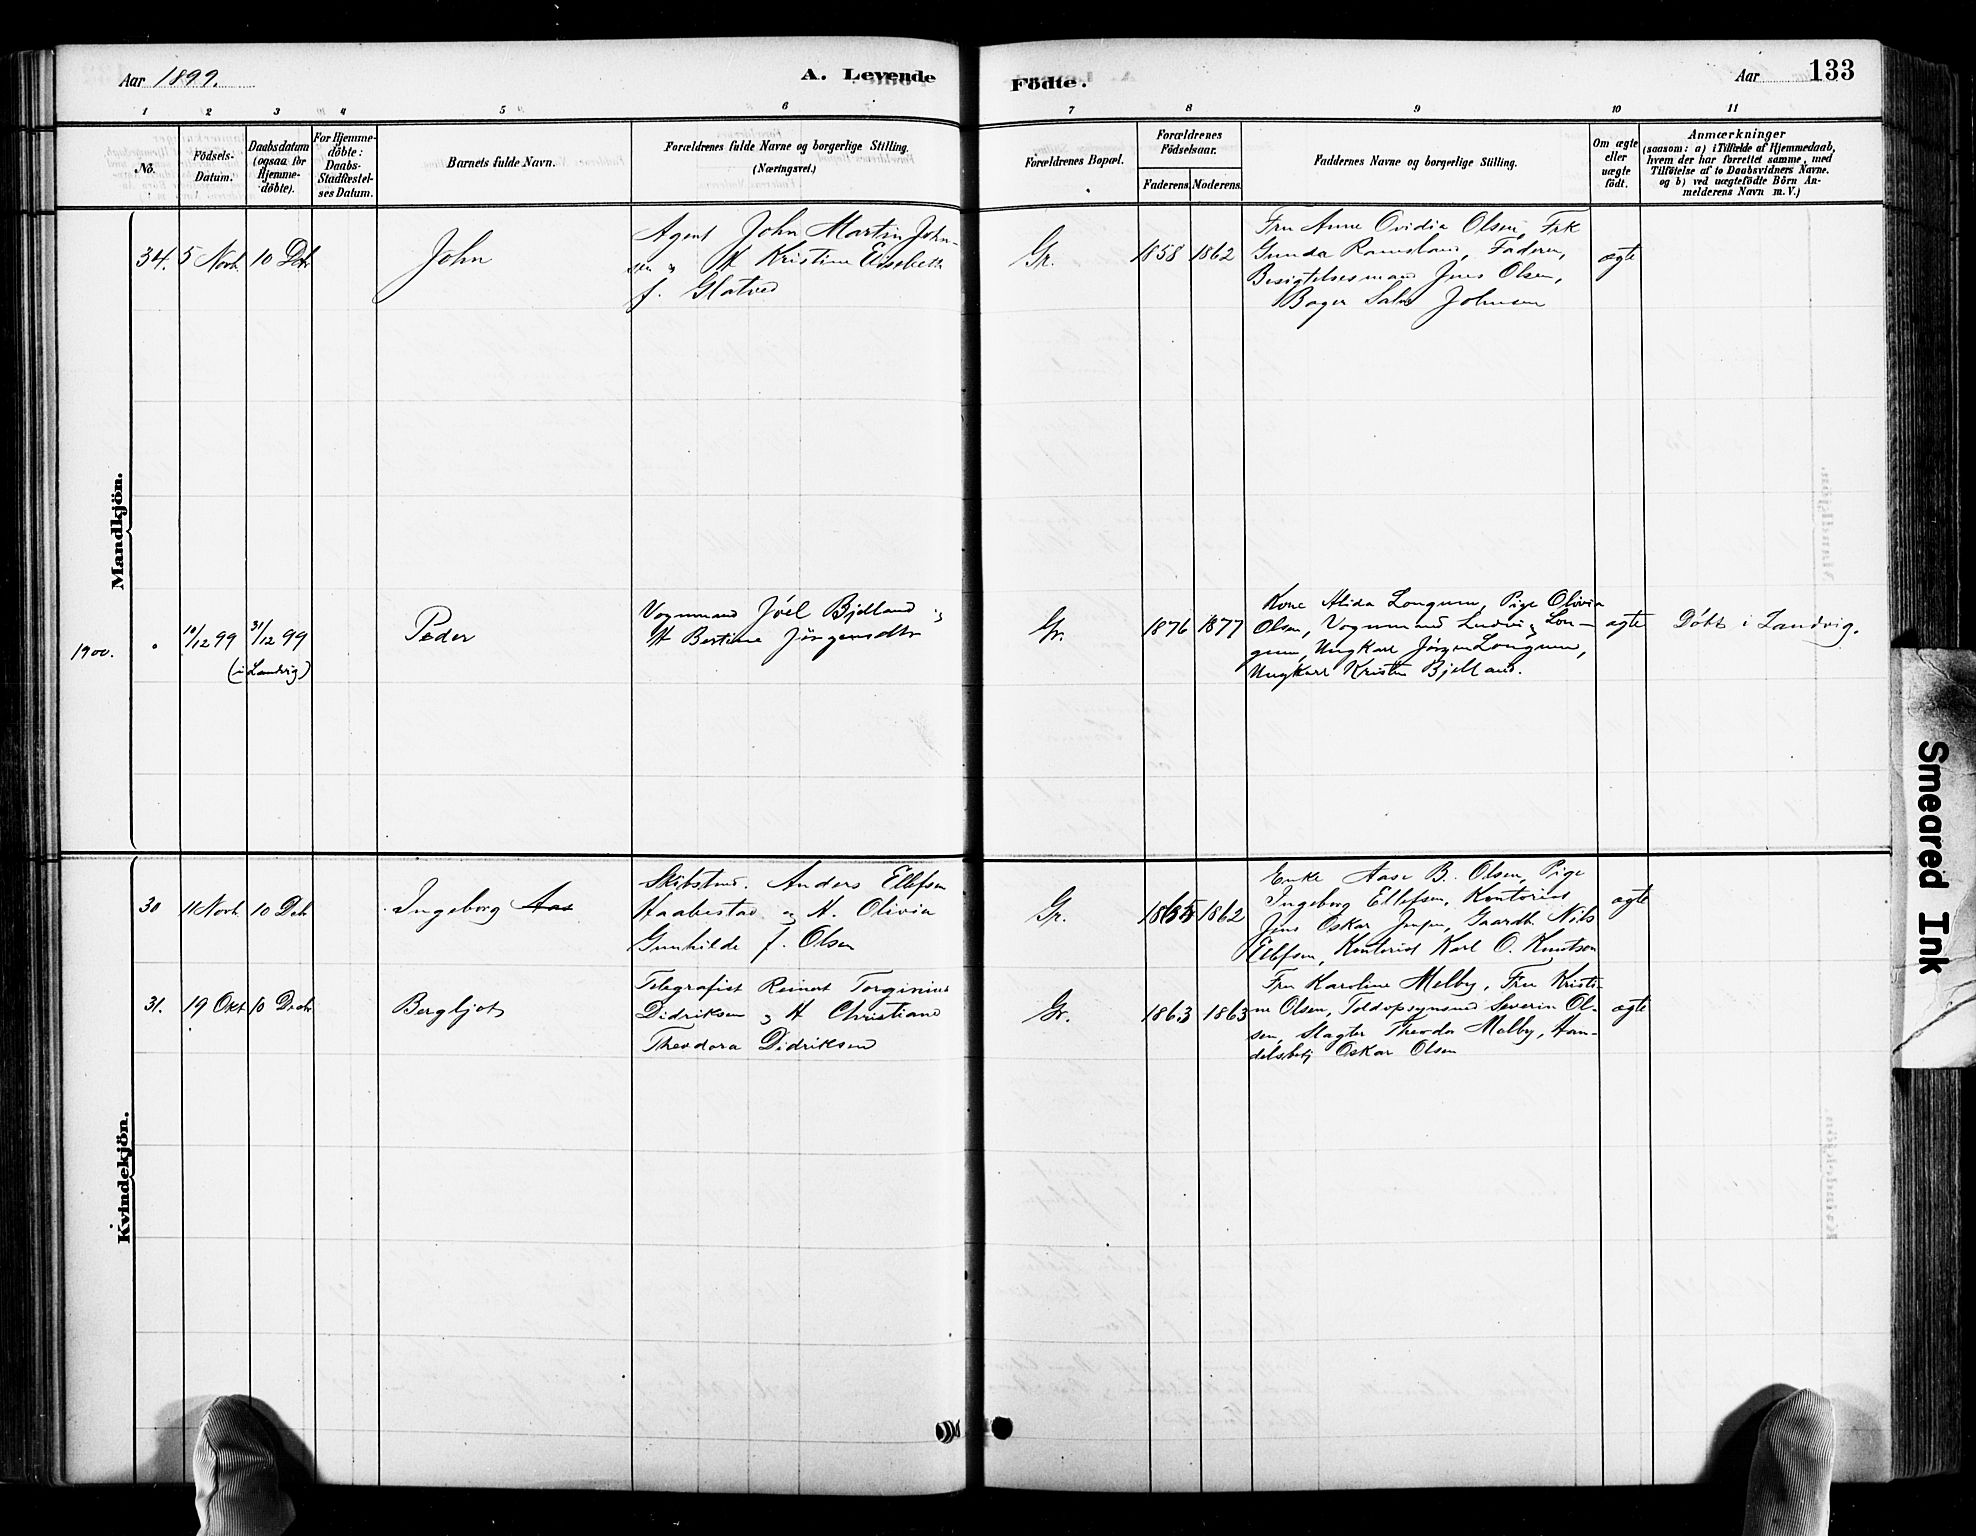 Aar 1899.
A. Levende
Födte.
Aar
133
1 2 3 4 5 6 7 8 9 10 11
No.
Födsels-
Datum.
Daabsdatum
(ogsaa for
Hjemme-
döbte).
For Hjemme-
döbte:
Daabs-
Stadfæstel-
ses Datum.
Barnets fulde Navn.
Forældrenes fulde Navne og borgerlige Stilling.
(Næringsvei.)
Forældrenes Bopæl.
Forældrenes
Födselsaar.
Faderens.
Moderens.
Faddernes Navne og borgerlige Stilling.
Om ægte
eller
uægte
födt.
Anmærkninger
(saasom: a) i Tilfælde af Hjemmedaab,
hvem der har forrettet samme, med
Tilföielse af to Daabsvidners Navne.
og b) ved uægtefödte Börn An-
melderens Navn m. V.)
Mandkjön.
34. 5 Novb. 10 Dcb.
John
Agent John Martin John-
sen og H Kristine Elisebeth
f. Glatved
Gr.
1858 1862
Fru Anne Ovidia Olsen, Frk
Gunda Ramsland, Faderen,
Besigtelsesmand Jens Olsen,
Bager Johnsen
ægte
1900.
10/12 99 31/12 99
(i Landvig)
Peder
Vognmand Jóel Bjelland og
H Bertine Jörgensdtr
Gr.
1876 1877
Kone Alida Longum, Pige Olivia
Olsen, Vognmand Ludvig Lon-
gum, Ungkarl Jörgen Longum,
Ungkarl Kristen Bjelland.
ægte
Döbt i Landvig.
Kvindekjön.
30 11 Novb. 10 Dcb
Ingeborg Aas
Skibstmd. Anders Ellefsen
Haabestad og H. Olivia
Gunhilde f. Olsen
Gr.
1855 1862
Enke Aase B. Olsen, Pige
Ingeborg Ellefsen, Kontorist
Jens Oskar Jensen, Gaardb. Nils
Ellefsen, Kontorist Karl O. Knutson
ægte
31. 19 Okt. 10 Decbr
Bergljot
Telegrafist Reinert Torginius
Didriksen og H Christiane
Theodora Didriksen
Gr.
1863 1863
Fru Karoline Melby, Fru Kristi-
ne Olsen, Toldopsynsmd Severin Ol-
sen, Slagter Theodor Melby, Han-
delsbetj Oskar Olsen
ægte
Smeared Ink